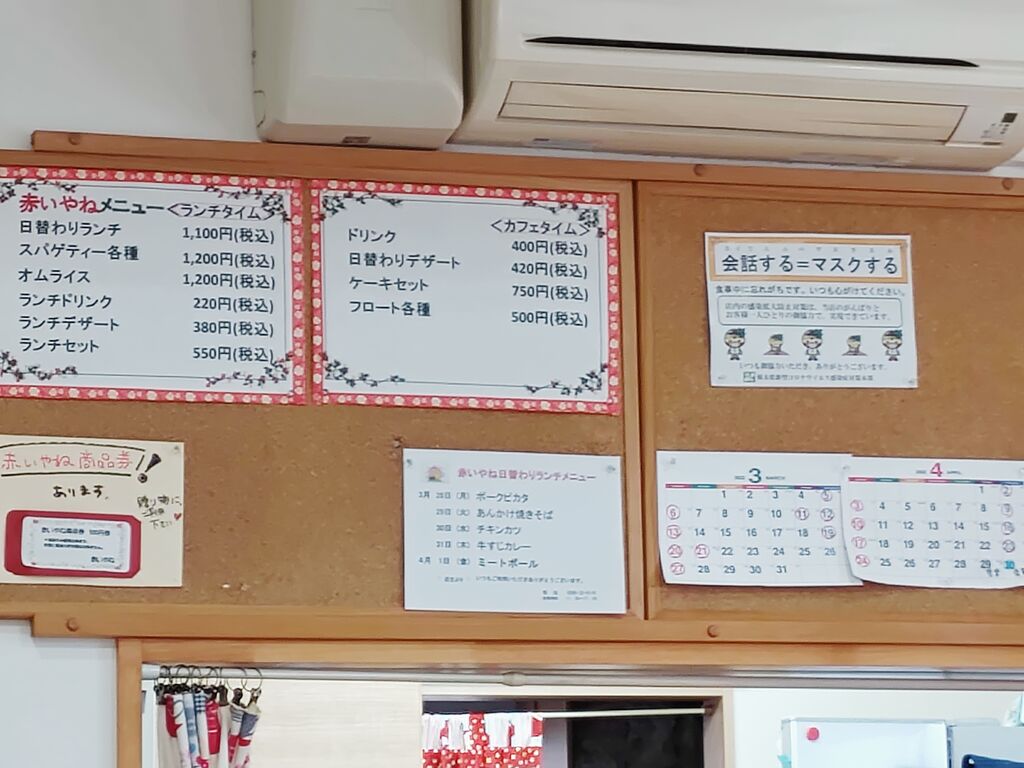 赤いやねメニュー<ランチタイム>
日替わりランチ 1,100円(税込)
スパゲティー各種 1,200円(税込)
オムライス 1,200円(税込)
ランチドリンク 220円(税込)
ランチデザート 380円(税込)
ランチセット 550円(税込)
<カフェタイム>
ドリンク 400円(税込)
日替わりデザート 420円(税込)
ケーキセット 750円(税込)
フロート各種 500円(税込)
会話する=マスクする
食事中に忘れがちです。いつも心がけてください。
店内の感染拡大防止対策は、当店のがんばりと
お客様一人ひとりの御協力で、実現できています。
いつも御協力いただき、ありがとうございます。
赤いやね商品券!!
あります。
贈り物に
ご利用
下さい
赤いやね商品券 500円券
赤いやね
赤いやね日替わりランチメニュー
3月 28日(月) ポークピカタ
29日(火) あんかけ焼きそば
30日(水) チキンカツ
31日(木) 牛すじカレー
4月 1日(金) ミートボール
いつもご利用いただきありがとうございます。
2022 3 MARCH
1 2 3 4 5
6 7 8 9 10 11 12
13 14 15 16 17 18 19
20 21 22 23 24 25 26
27 28 29 30 31
2022 4 APRIL
1 2
3 4 5 6 7 8 9
10 11 12 13 14 15 16
17 18 19 20 21 22 23
24 25 26 27 28 29 30